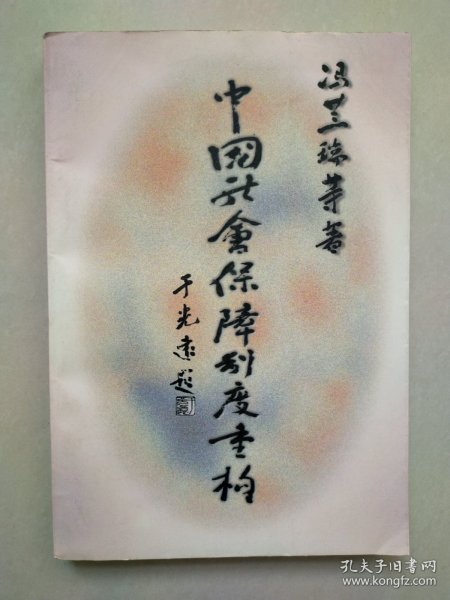 冯兰瑞等著
中国社會保障制度重构
于光远题
孔夫子旧书网
www.kongfz.com